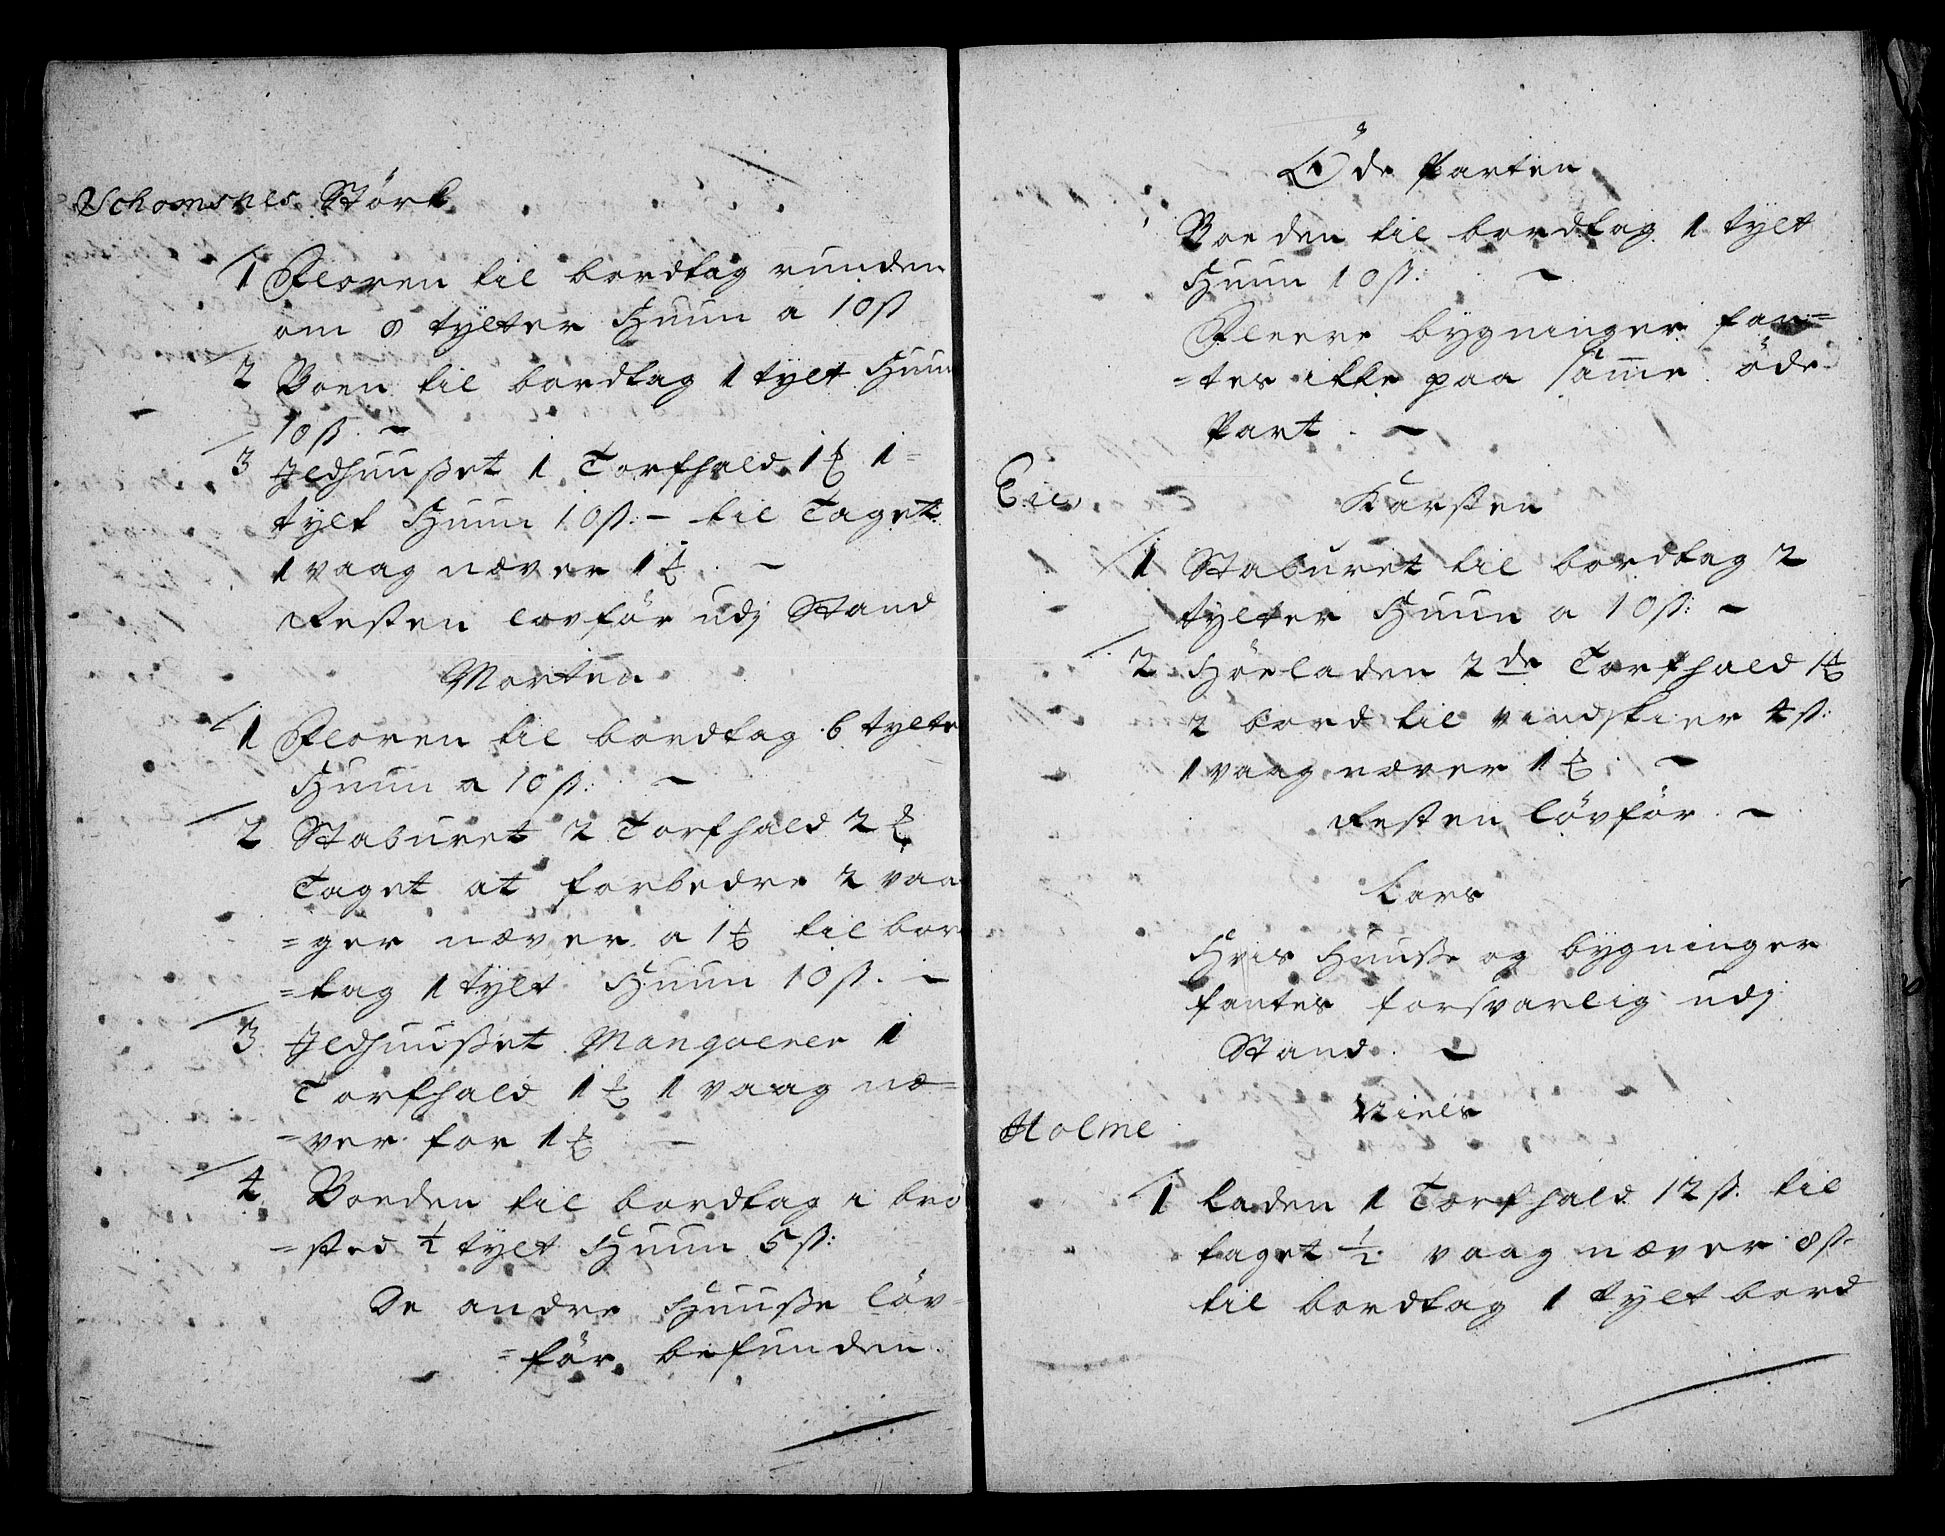 Schomsnes Størk
1 Floren til bordtag runden
om 8 tylter Huun a 10 ß
2 Boen til bordtag 1 tylt Huun
10 ß. –
3 Jldhuußet 1 Torfhald 1 1=
tylt Huun 10 ß: – til Taget
1 vaag næver 1 –
Resten lovför udj Stand
Morten
1 Floren til bordtag 6 tylte
Huun a 10 ß: –
2 Staburet 2 Torfhald 2
Taget at forbedre 2 vaa
=ger næver a 1 til bor
=tag 1 tylt Huun 10 ß. –
3 Jldhuußet Manqverer 1
Torfhald 1 1 vaag næ=
=ver for 1 –
4 Boeden til bordtag i brö
=sted ½ tylt Huun 5 ß:
De andre Huuße löv=
=för befunden.
Öde Parten
Boeden til bordtag 1 tylt
Huun 10 ß: –
Fleere bygninger fan=
=tes ikke paa samme öde
Part. –
Karsten
1 Staburet til bordtag 2
tylter Huun a 10 ß: –
2 Höeladen 2de Torfhald 1
2 bord til vindskier 4 ß:
1 vaag næver 1 –
Resten lövför. –
Lars
Hvis Huuße og bygninger
fantes forsvarlig udj
Stand. –
Niels
Holme
1 Laden 1 Torfhald 12 ß. til
taget ½ vaag næver 8 ß
til bordtag 1 tylt bord